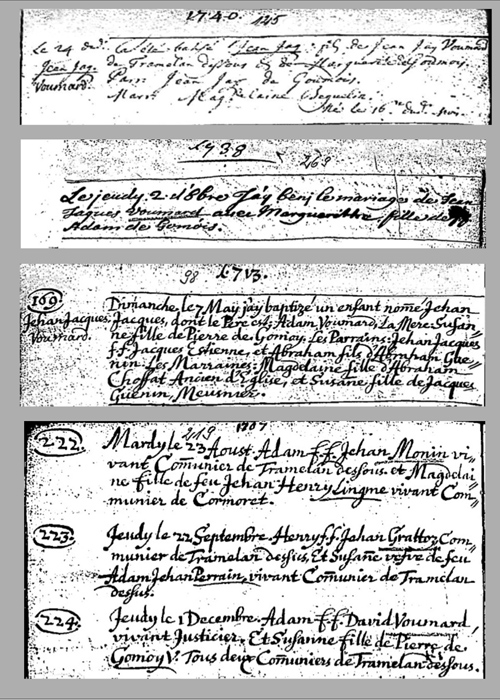 1740. 125
Le 24 dud. a été batisé Jean Jaq. fils de Jean Jaq Voumard
Jean Jaq. de Tramelan dessus & de Marguerite de Gomois.
Voumard. Parr. Jean Jaq de Gomois.
Marr. Magdelaine Béguelin.
Né le 16 dud. mois.
1738 269
Le jeudy 2 d'8bre j'ay beni le mariage de Jean
Jaques Voumard avec Marguerithe, fille de
Adam de Gomois.
98 1713.
169.
Jehan Jacques
Voumard.
Dimanche le 7 May j'ay baptizé un enfant nomé Jehan
Jacques, dont le Pere est; Adam Voumard, La Mere: Susan=
ne fille de Pierre de Gomoy, Les Parrains: Jehan Jacques
f.f. Jacques Etienne, et Abraham fils d'Abraham Gue=
nin. Les Marraines: Magdelaine fille d'Abraham
Choffat Ancien d'Eglise, et Susane fille de Jacques
Guenin, Meusnier.
219 1707
222. Mardy le 23 Aoust Adam f.f. Jehan Monin vi=
vant Comunier de Tramelan dessous, et Magdelai=
ne fille de feu Jehan Henry Lingme vivant Com=
munier de Cormoret.
223. Jeudy le 22 Septembre Henry f.f. Jehan Grattoz Com=
munier de Tramelan dessus, Et Susane vefve de feu
Adam Jehan Perrain, vivant Comunier de Tramelan
dessus.
224. Jeudy le 1 Decembre. Adam f.f. David Voumard
vivant Justicier, Et Susanne fille de Pierre de
Gomoy V. Tous deux Comuniers de Tramelan dessous.